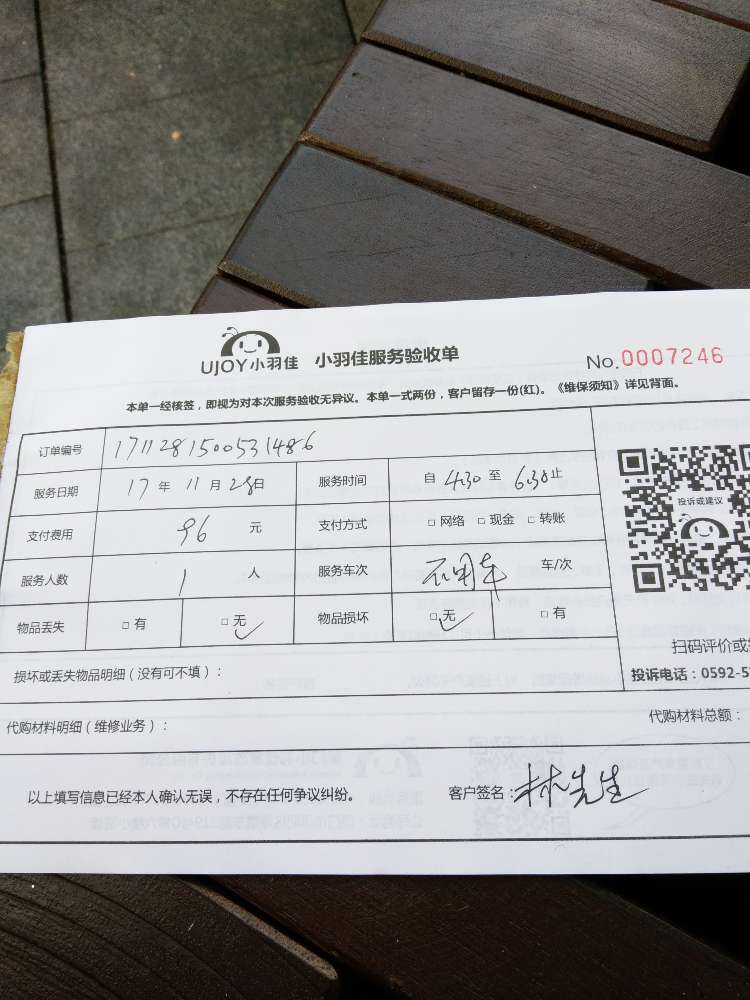 UJOY小羽佳 小羽佳服务验收单 No.0007246
本单一经核签，即视为对本次服务验收无异议。本单一式两份，客户留存一份(红)。《维保须知》详见背面。
订单编号 1711281500531486
服务日期 17 年 11 月 28 日 服务时间 自 4:30 至 6:30 止
投诉或建议
支付费用 96 元 支付方式 □ 网络 □ 现金 □ 转账
服务人数 1 人 服务车次 不用车 车/次
物品丢失 □ 有 □ 无 物品损坏 □ 无 □ 有
扫码评价或
损坏或丢失物品明细（没有可不填）：
投诉电话：0592-5
代购材料明细（维修业务）： 代购材料总额：
以上填写信息已经本人确认无误，不存在任何争议纠纷。 客户签名：林先生